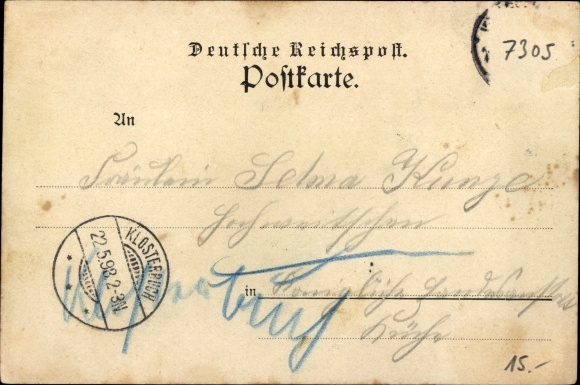 7305
Deutsche Reichspost.
Postkarte.
An
Fräulein Selma Kunze
Hochweitzschen
KLOSTERBUCH
22.5.98.2-3N.
Klosterbuch
in Königliche Landesanstalt
Küche
15.-